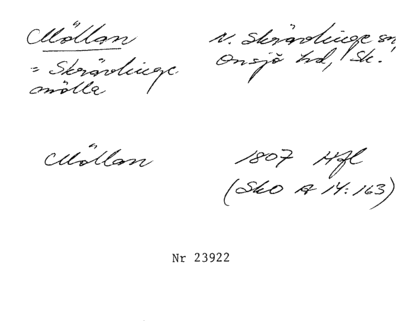 Möllan N. Skrävlinge sn
= Skrävlinge Onsjö hd, Sk.
mölla
Möllan 1807 Hfl
(SkO A 14:163)
Nr 23922